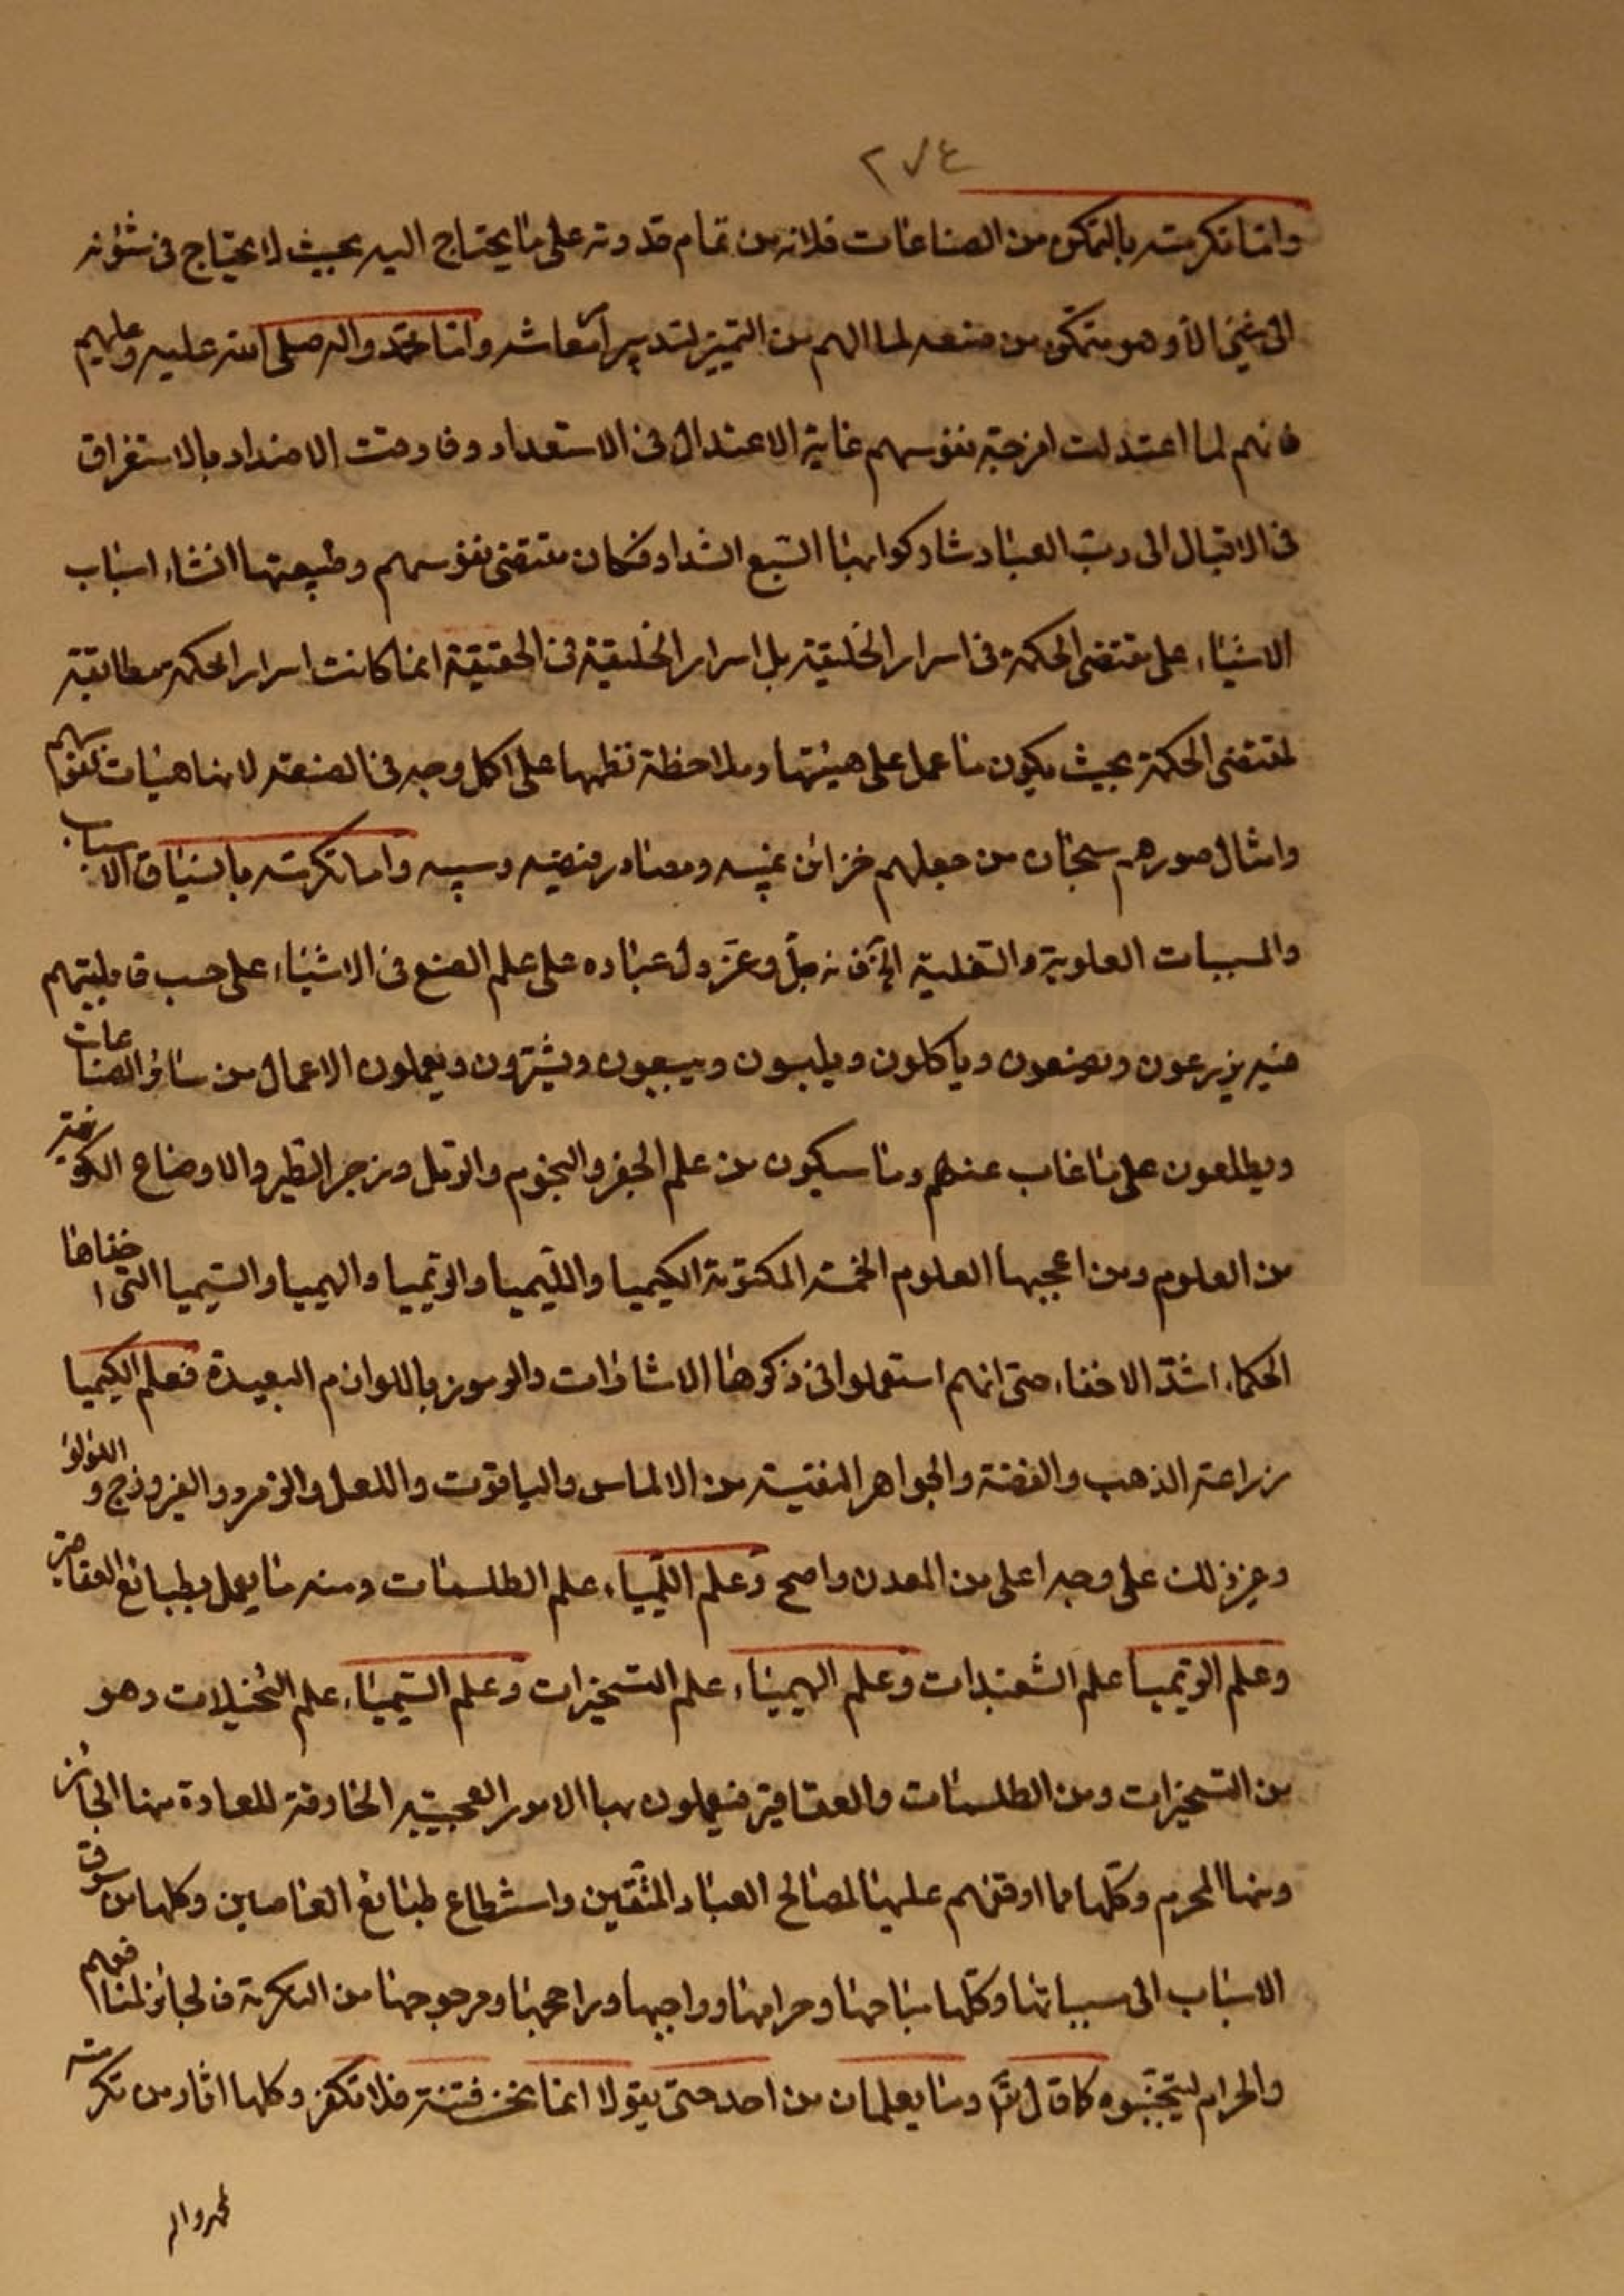 ٢٧٤
وامّا تكرمته بالتمكن من الصناعات فلانه من تمام قدرته على ما يحتاج اليه بحيث لا يحتاج فى شؤنه
الى شىء الّا وهو متمكن من صنعه لما الهم من التمييز لتدبير امر معاشه وامّا محمّد واله صلى الله عليه وعليهم
فانهم لما اعتدلت امزجة نفوسهم غاية الاعتدال فى الاستعداد وفارقت الاضداد بالاستغراق
فى الاقبال الى ربّ العباد شاركوا بها السّبع الشداد فكان مقتضى نفوسهم وطبيعتها انشاء اسباب
الاشياء على مقتضى الحكمة فى اسرار الخليقة بل اسرار الخليقة فى الحقيقة انما كانت اسرار الحكمة مطابقة
لمقتضى الحكمة بحيث يكون ما عمل على هيئتها وملاحظة نظمها على اكمل وجه فى الصنعة لانها هيئات نفوسهم
وامثال صورهم سبحان من جعلهم خزائن غيبه ومصادر فيضه وسيبه وامّا تكرمته بانسياق الاسباب
والمسببات العلوية والسّفلية الخ فانه جلّ وعزّ دل عباده على علم الصنع فى الاشياء على حسب قابليتهم
فيه يزرعون ويصنعون وياكلون ويلبسون ويبيعون ويشترون ويعملون الاعمال من سائر الصناعات
ويطلعون على ما غاب عنهم وما سيكون من علم الجفر والنجوم والرمل وزجر الطير والاوضاع الكونية
من العلوم ومن اعجبها العلوم الخمسة المكتومة الكيميا والليميا والريميا والهيميا والسّيميا التى اخفاها
الحكماء اشدّ الاخفاء حتى انهم استعملوا فى ذكرها الاشارات والرموز باللوازم البعيدة فعلم الكيميا
زراعة الذهب والفضة والجواهر النفيسة من الالماس والياقوت واللعل والزمرد والفيروزج واللؤلؤ
وغير ذلك على وجه اعلى من المعدن واصح وعلم اللّيمياء علم الطلسمات ومنه ما يعمل بطبائع العقاقير
وعلم الريميا علم الشعبذات وعلم الهيمياء علم التسخيرات وعلم السّيمياء علم التخيلات وهو
من التسخيرات ومن الطلسمات والعقاقير فيعملون بها الامور العجيبة الخارقة للعادة منها الجائز
ومنها المحرم وكلّها مما اوقفهم عليها لمصالح العباد المتّقين واستنطاع طبائع العاصين وكلها من سوق
الاسباب الى مسبباتها وكلّها مباحها وحرامها وواجبها وراجحها ومرجوحها من التكرمة فالجائز لمنافعهم
والحرام ليتجنبوه كما قال تعا وما يعلمان من احد حتى يقولا انما نحن فتنة فلا تكفر وكلها اثار من تكرمته
محمد واله